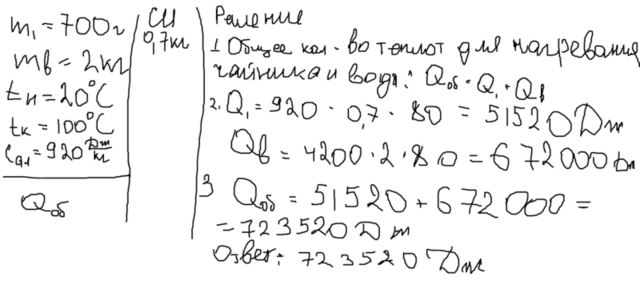 m₁ = 700г
mв = 2кг
tн = 20°C
tк = 100°C
Cал = 920 Дж/кг
Qоб
СИ
0,7кг
Решение
1 Общее кол-во теплот для нагревания
чайника и воды: Qоб = Q₁ + Qв
2. Q₁ = 920 · 0,7 · 80 = 51520 Дж
Qв = 4200 · 2 · 80 = 672000 Дж
3 Qоб = 51520 + 672000 =
= 723520 Дж
Ответ: 723520 Дж